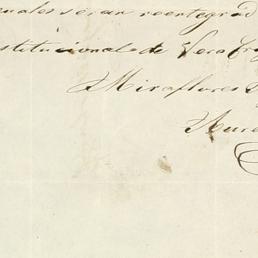 uales seran reentegrad
stitucional de Vera
Miraflores
Aure